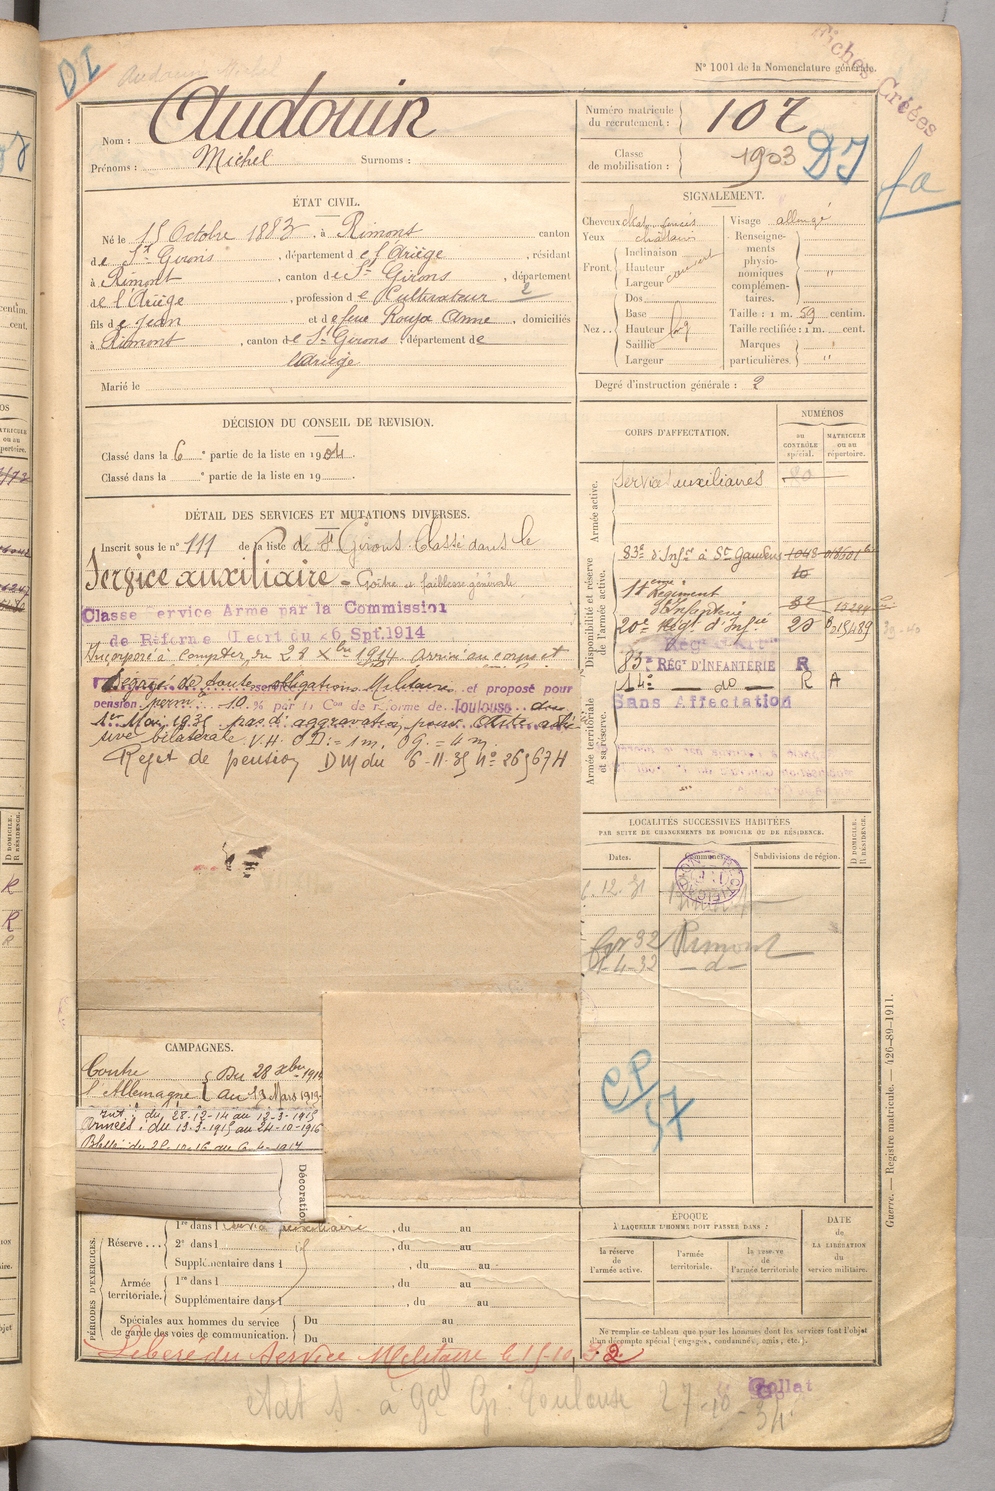 DI
Audouin Michel
N° 1001 de la Nomenclature générale.
Fiches Créées
Nom : Audouin
Prénoms : Michel Surnoms :
Numéro matricule du recrutement : 107
Classe de mobilisation : 1903
DI
fa
ÉTAT CIVIL.
Né le 15 Octobre 1883 à Rimont canton
de St Girons, département de l'Ariège, résidant
à Rimont, canton de St Girons, département
de l'Ariège, profession de Cultivateur 2
fils de Jean et de feue Rouja Anne, domiciliés
à Rimont, canton de St Girons, département de
l'Ariège
Marié le
SIGNALEMENT.
Cheveux chat. foncés
Yeux châtain
Front. Inclinaison
Hauteur couvert
Largeur
Nez.. Dos
Base
Hauteur
Saillie
Largeur
Visage allongé
Renseignements physionomiques complémentaires. "
Taille : 1 m. 59 centim.
Taille rectifiée : 1 m. cent.
Marques particulières. "
Degré d'instruction générale : 2
DÉCISION DU CONSEIL DE REVISION.
Classé dans la 6 e partie de la liste en 1904.
Classé dans la e partie de la liste en 19
DÉTAIL DES SERVICES ET MUTATIONS DIVERSES.
Inscrit sous le n° 111 de la liste de St Girons. Classé dans le
Service auxiliaire = Goître et faiblesse générale
Classe ervice Armé par la Commission
de Réforme (Décrt du 26 Spt.1914
Incorporé à compter du 28 Xbre 1914. Arrivé au corps et
Dégagé de toutes obligations Militaires et proposé pour
pension perm. à - 10 % par la Con de réforme de Toulouse du
1er Mai 1935 pas d'aggravation, pour Otite
bilatérale V.H. OD: = 1 m, OG. = 4 m.
Rejet de pension DM du 6-11-35 N° 26967H
CORPS D'AFFECTATION.
NUMÉROS
au CONTRÔLE spécial.
MATRICULE ou au répertoire.
Armée active.
Services auxiliaires
Disponibilité et réserve de l'armée active.
83e d'Infie à St Gaudens 1048
14eme Régiment d'Infanterie 32
20e Régt d'Infie 20
83e RÉGt D'INFANTERIE R
14e — do — R A
Sans Affectation
Armée territoriale et sa réserve.
LOCALITÉS SUCCESSIVES HABITÉES
PAR SUITE DE CHANGEMENTS DE DOMICILE OU DE RÉSIDENCE.
Dates. Communes. Subdivisions de région. D DOMICILE. R RÉSIDENCE.
12.31
32 Rimont
1-4-32 — d —
CP/37
CAMPAGNES.
Contre l'Allemagne Du 28 Xbre 1914
au 13 Mars 1919
Int : du 28-12-14 au 12-3-1915
Armées : du 13-3-1915 au 24-10-1916
Blessé du 25-10-16 au 6-4-1917
Décoration
PÉRIODES D'EXERCICES.
Réserve... 1re dans l service auxiliaire, du au
2e dans l, du au
Supplémentaire dans l, du au
Armée territoriale. 1re dans l, du au
Supplémentaire dans l, du au
Spéciales aux hommes du service de garde des voies de communication. Du au
Du au
ÉPOQUE
À LAQUELLE L'HOMME DOIT PASSER DANS :
la réserve de l'armée active.
l'armée territoriale.
la réserve de l'armée territoriale
DATE de LA LIBÉRATION du service militaire.
Ne remplir ce tableau que pour les hommes dont les services font l'objet
d'un décompte spécial (engagés, condamnés, omis, etc.).
Libéré du Service Militaire le 15-10-32
Collat
état s. à Gal Gi Toulouse 27-10-34
Guerre. — Registre matricule. — 426-89-1911.